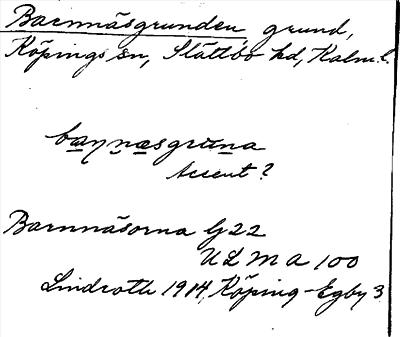 Barnnäsgrunden grund,
Köpings sn, Slättbo hd, Kalm. l.
baṇṇæsgruna
Accent?
Barnnäsorna G22
ULMA 100
Lindroth 1914, Köping-Egby 3